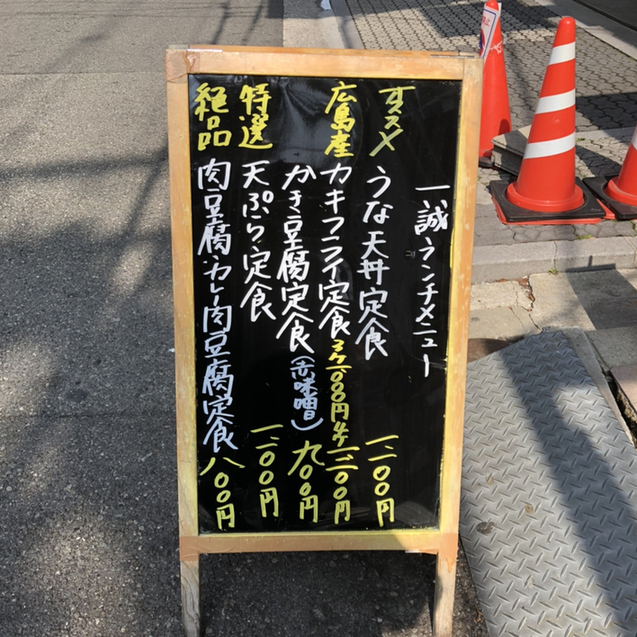 一誠ランチメニュー
すスメ うな天丼定食 一二〇〇円
広島産 カキフライ定食 3ケ一〇〇〇円 4ケ
かき豆腐定食(赤味噌) 九〇〇円
特選 天ぷら定食
絶品 肉豆腐・カレー肉豆腐定食 八〇〇円